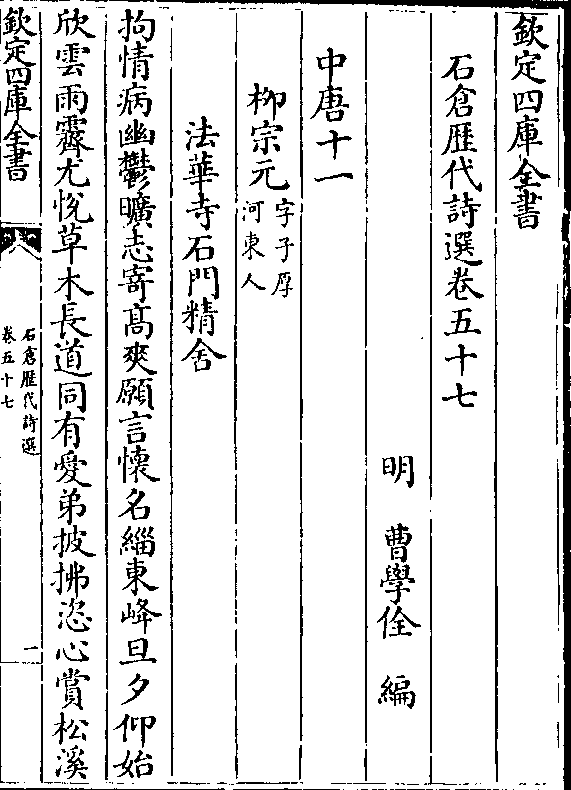 欽定四庫全書
石倉歴代詩選卷五十七
明 曹學佺 編
中唐十一
柳宗元字子厚
河東人
法華寺石門精舍
拘情病幽鬱曠志寄髙爽願言懷名緇東峰旦夕仰始
欣雲雨霽尤悅草木長道同有愛弟披拂恣心賞松溪
欽定四庫全書
石倉歴代詩選
卷五十七
一